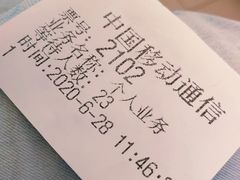 中国移动通信
票号: 2102
业务名称: 个人业务
等待人数: 23
1
时间:2020-6-28 11:46